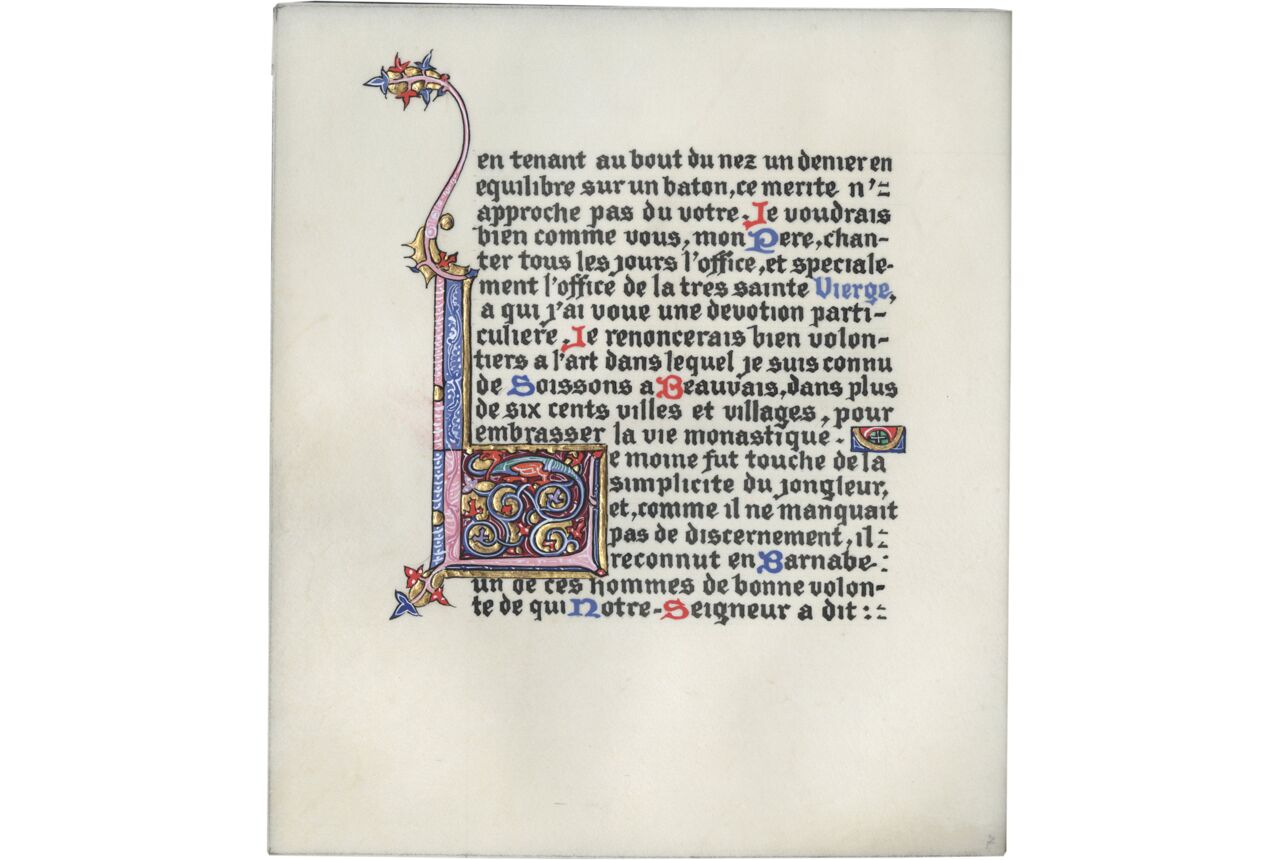 en tenant au bout du nez un denier en
equilibre sur un baton, ce merite n'
approche pas du votre. Je voudrais
bien comme vous, mon Pere, chan-
ter tous les jours l'office, et speciale-
ment l'office de la tres sainte Vierge,
a qui j'ai voue une devotion parti-
culiere. Je renoncerais bien volon-
tiers a l'art dans lequel je suis connu
de Soissons a Beauvais, dans plus
de six cents villes et villages, pour
embrasser la vie monastique.
Le moine fut touche de la
simplicite du jongleur,
et, comme il ne manquait
pas de discernement, il
reconnut en Barnabe
un de ces hommes de bonne volon-
te de qui Notre-Seigneur a dit :